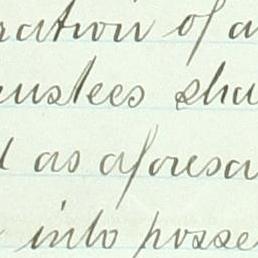 ration of a
rustees sha
d as aforesa
into posse